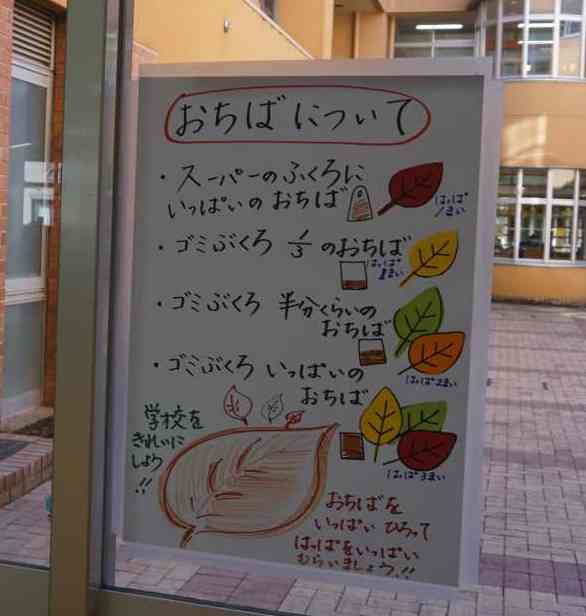 おちばについて
・スーパーのふくろに
いっぱいのおちば
はっぱ
1まい
・ゴミぶくろ 1/3 のおちば
はっぱ
1まい
・ゴミぶくろ 半分くらいの
おちば
はっぱ2まい
・ゴミぶくろ いっぱいの
おちば
はっぱ3まい
学校を
きれいに
しよう
!!
おちばを
いっぱい ひろって
はっぱをいっぱい
もらいましょう!!